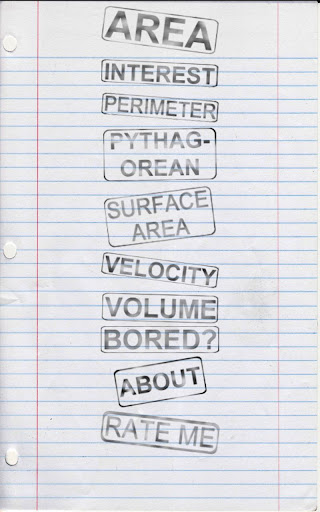 AREA
INTEREST
PERIMETER
PYTHAG-
OREAN
SURFACE
AREA
VELOCITY
VOLUME
BORED?
ABOUT
RATE ME